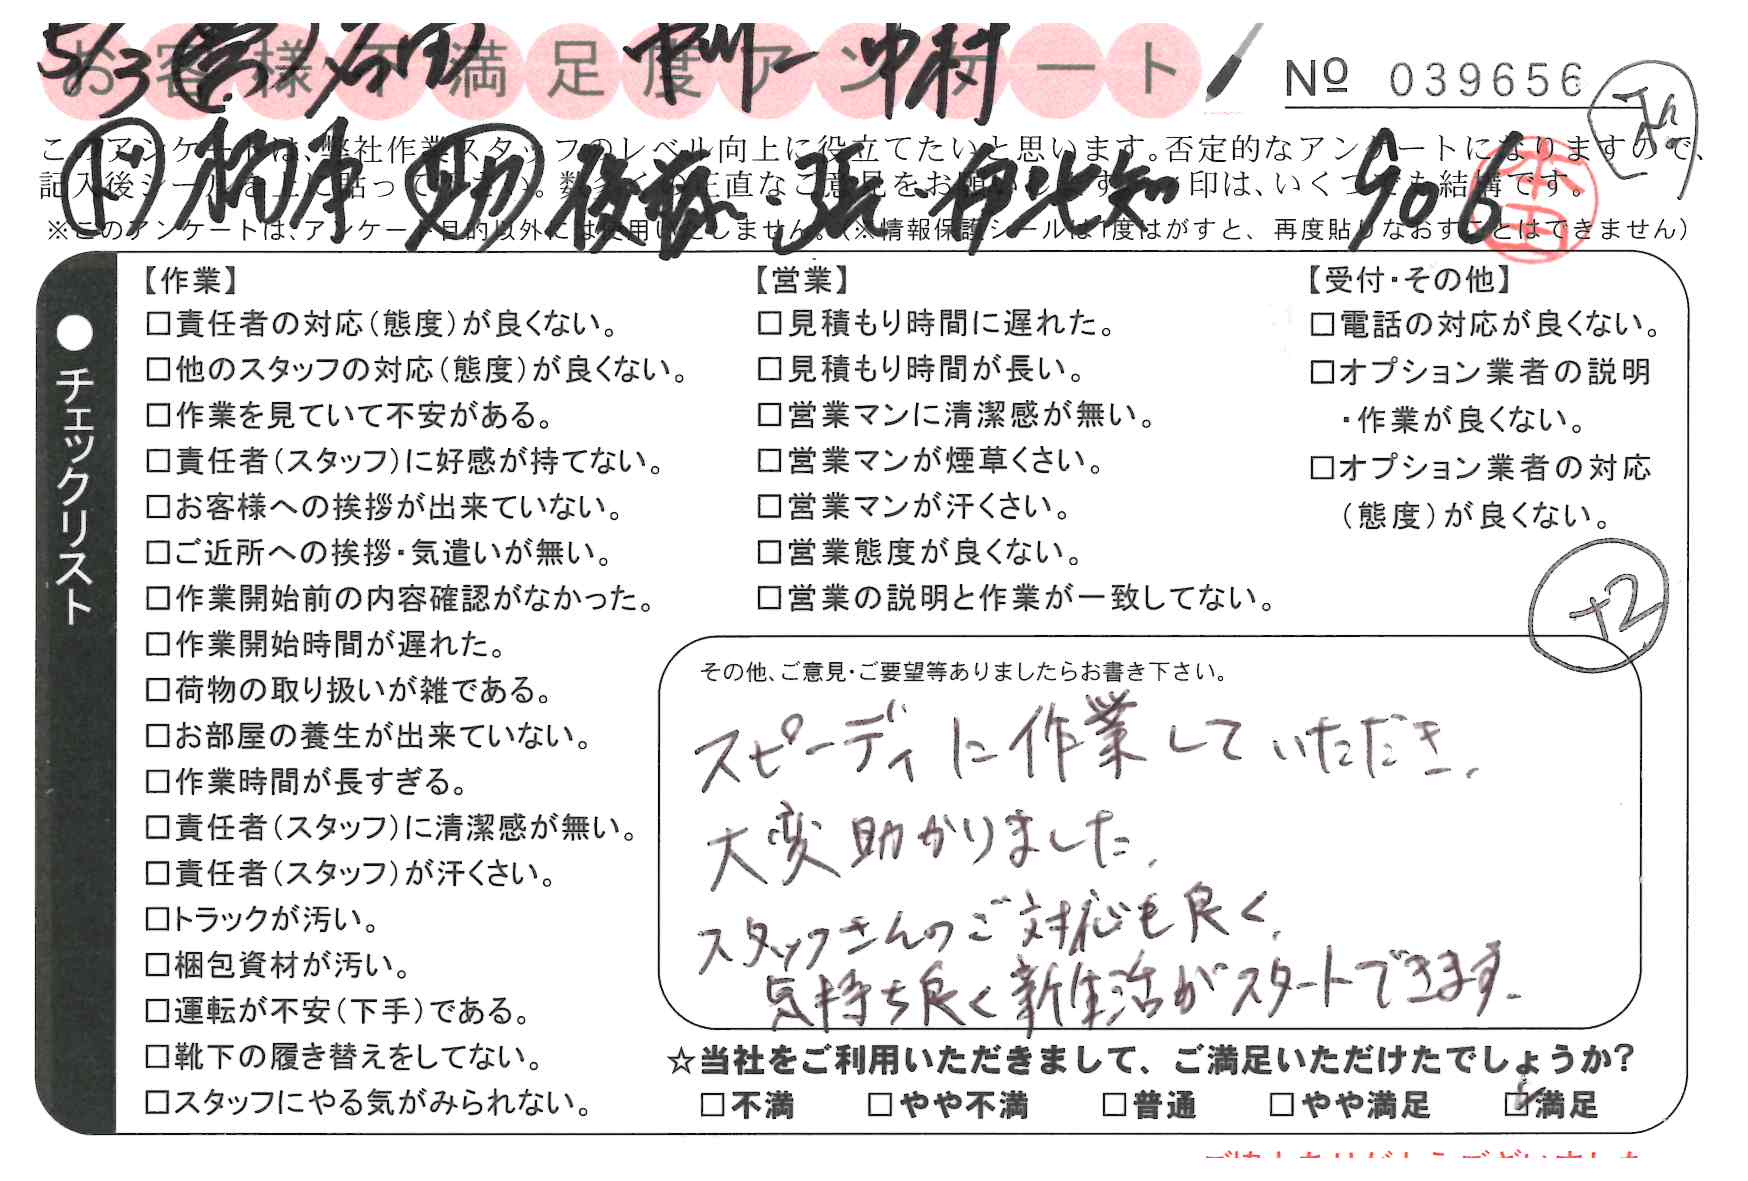 お客様不満足度アンケート
5/3 石田 中川 中村
Nº 039656
このアンケートは、弊社作業スタッフのレベル向上に役立てたいと思います。否定的なアンケートになりますので、
記入後シールを上に貼って下さい。数多くの正直なご意見をお願いします。印は、いくつでも結構です。
後藤・張・伊比知 906
本田
※このアンケートは、アンケート目的以外には使用いたしません。(※情報保護シールは1度はがすと、再度貼りなおすことはできません)
●チェックリスト
【作業】
□責任者の対応(態度)が良くない。
□他のスタッフの対応(態度)が良くない。
□作業を見ていて不安がある。
□責任者(スタッフ)に好感が持てない。
□お客様への挨拶が出来ていない。
□ご近所への挨拶・気遣いが無い。
□作業開始前の内容確認がなかった。
□作業開始時間が遅れた。
□荷物の取り扱いが雑である。
□お部屋の養生が出来ていない。
□作業時間が長すぎる。
□責任者(スタッフ)に清潔感が無い。
□責任者(スタッフ)が汗くさい。
□トラックが汚い。
□梱包資材が汚い。
□運転が不安(下手)である。
□靴下の履き替えをしてない。
□スタッフにやる気がみられない。
【営業】
□見積もり時間に遅れた。
□見積もり時間が長い。
□営業マンに清潔感が無い。
□営業マンが煙草くさい。
□営業マンが汗くさい。
□営業態度が良くない。
□営業の説明と作業が一致してない。
【受付・その他】
□電話の対応が良くない。
□オプション業者の説明
・作業が良くない。
□オプション業者の対応
(態度)が良くない。
+2
その他、ご意見・ご要望等ありましたらお書き下さい。
スピーディに作業していただき、
大変助かりました。
スタッフさんのご対応も良く、
気持ち良く新生活がスタートできます。
☆当社をご利用いただきまして、ご満足いただけたでしょうか?
□不満 □やや不満 □普通 □やや満足 □満足
ご協力ありがとうございました